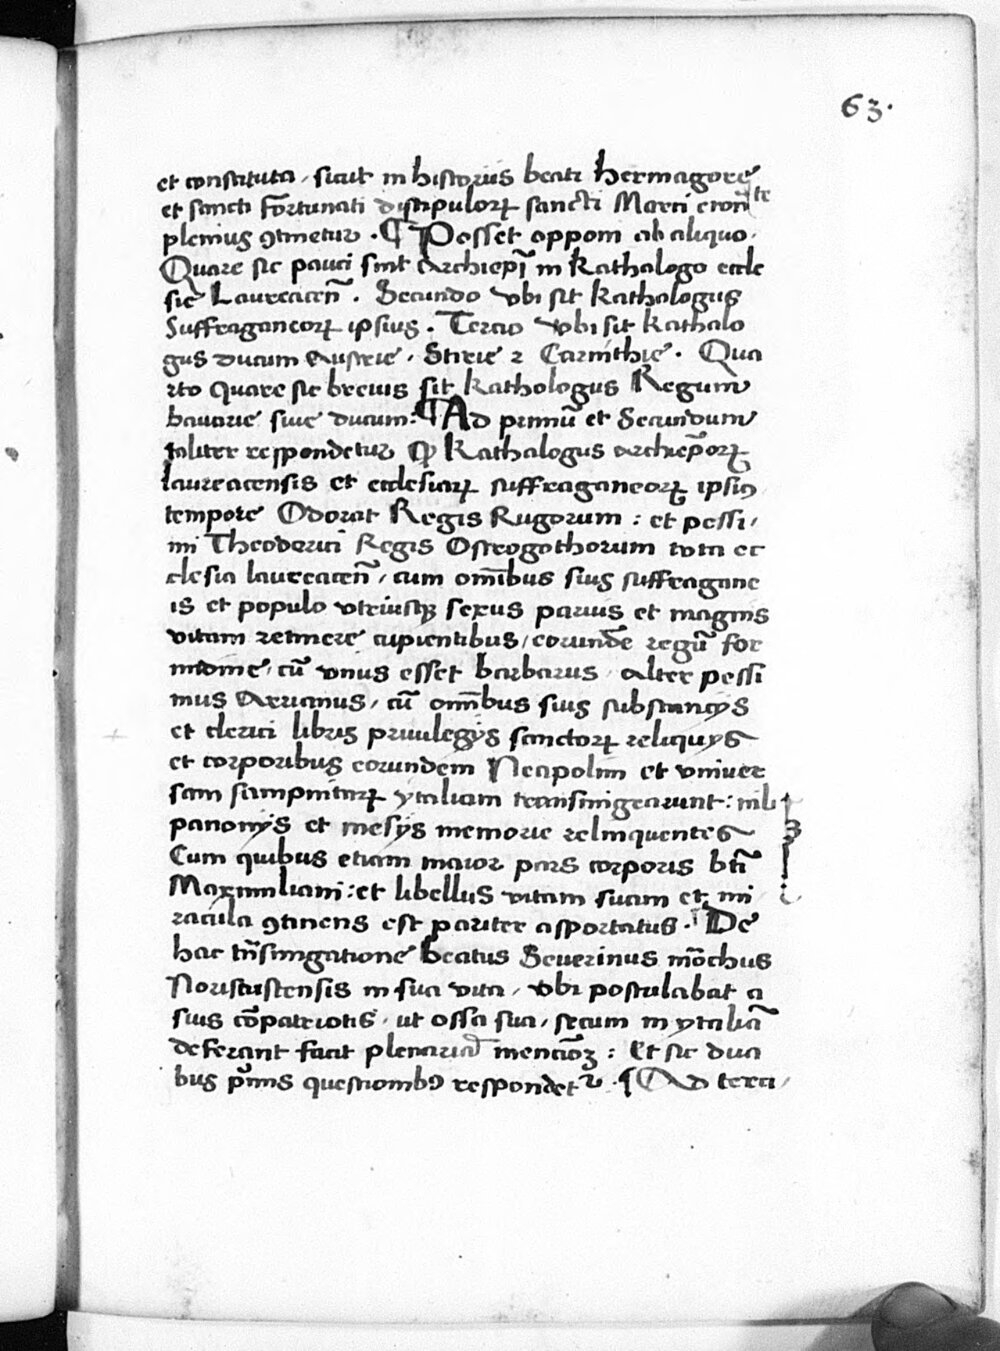 63.
et constituta, sicut in historiis beati hermagore
et sancti Fortunati discipuloꝝ sancti Marci ewañ te
plenius ꝯtinetur . ¶ Posset opponi ab aliquo.
Quare sic pauci sint Archiepi̅ in Kathalogo eccle
sie Laureaceñ . Secundo vbi sit kathologus
Suffraganeoꝝ ipsius . Tercio vbi sit kathalo
gus ducum Austrie, Stirie ⁊ Carinthie . Qua
rto Quare sic breuis sit kathologus Regum
bauarie siue ducum. ¶ Ad primū et Secundum
taliter respondetur ꝙ Kathalogus archiep̅oꝝ
laureacensis et ecclesiaꝝ suffraganeoꝝ ipsiꝯ
tempore Odorat Regis Rugorum : et pessi,
mi Theoderici Regis Ostrogothorum tota ec
clesia laureaceñ, cum om̅ibus suis suffragane
is et populo vtriusqꝫ sexus paruis et magnis
vitam retinere cupientibus, eorundē regū for
midine, cū vnus esset barbarus, alter pessi
mus Arrianus, cū om̅ibus suis substancijs
et clerici libris priuilegijs sanctoꝝ reliquijs
et corporibus eorundem Neapolim et vniuer
sam sampnitaꝝ ytaliam transmigrarunt : nil i
panonijs et mesijs memorie relinquentes
Cum quibus etiam maior pars corporis bti̅
Maximiliani : et libellus vitam suam et mi
racula ꝯtinens est pariter asportatus . De
hac tn̅smigratione beatus Seuerinus mōchus
Norististensis in sua vita, vbi postulabat a
suis cōpatriotis, ut ossa sua, secum in ytaliā
deferant facit plenariā menciōꝫ : Et sic dua
bus p̅mis questionibꝯ respondetr . ¶ Ad terci,